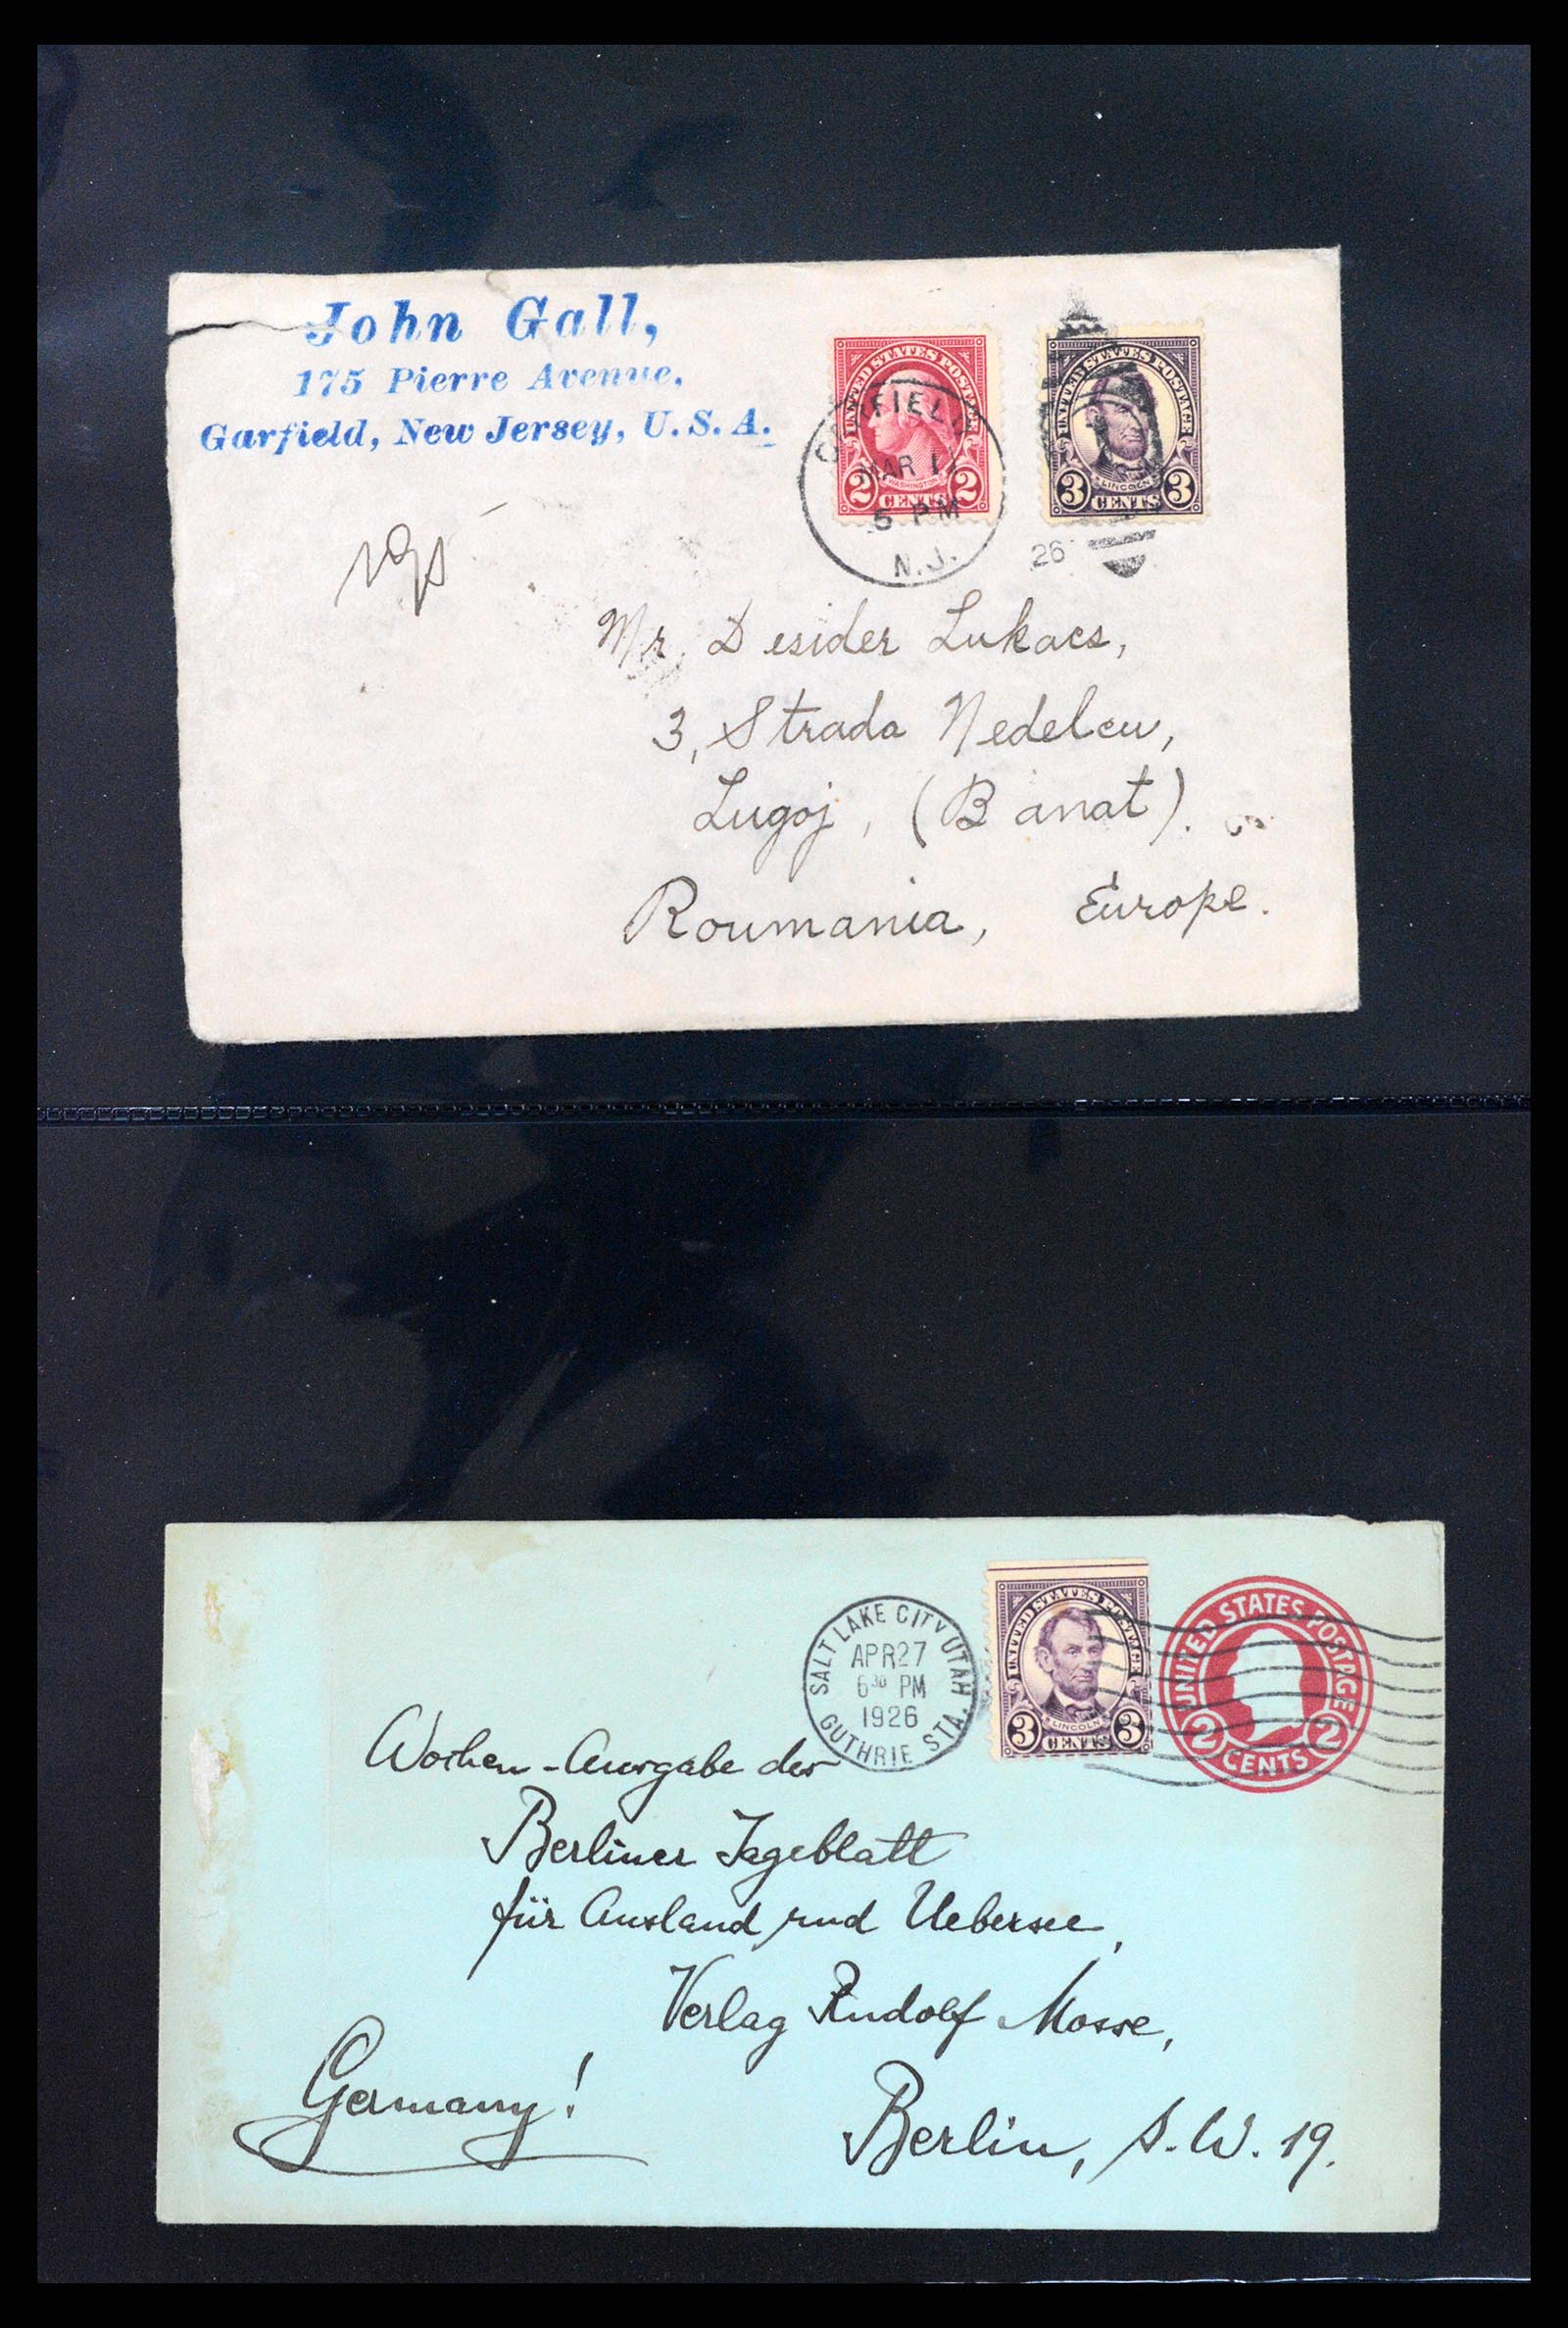 John Gall,
175 Pierre Avenue,
Garfield, New Jersey, U.S.A.
UNITED STATES POSTAGE
WASHINGTON
2 CENTS 2
UNITED STATES POSTAGE
LINCOLN
3 CENTS 3
GARFIELD
MAR 11
5 PM
N.J.
26
Mr. Desider Lukacs,
3, Strada Nedelcu,
Lugoj, (Banat).
Roumania, Europe.
SALT LAKE CITY UTAH
APR 27
6 30 PM
1926
GUTHRIE STA.
UNITED STATES POSTAGE
LINCOLN
3 CENTS 3
UNITED STATES POSTAGE
2 CENTS 2
Wochen-Ausgabe des
Berliner Tageblatt
für Ausland und Uebersee,
Verlag Rudolf Mosse,
Germany!
Berlin, S.W. 19.